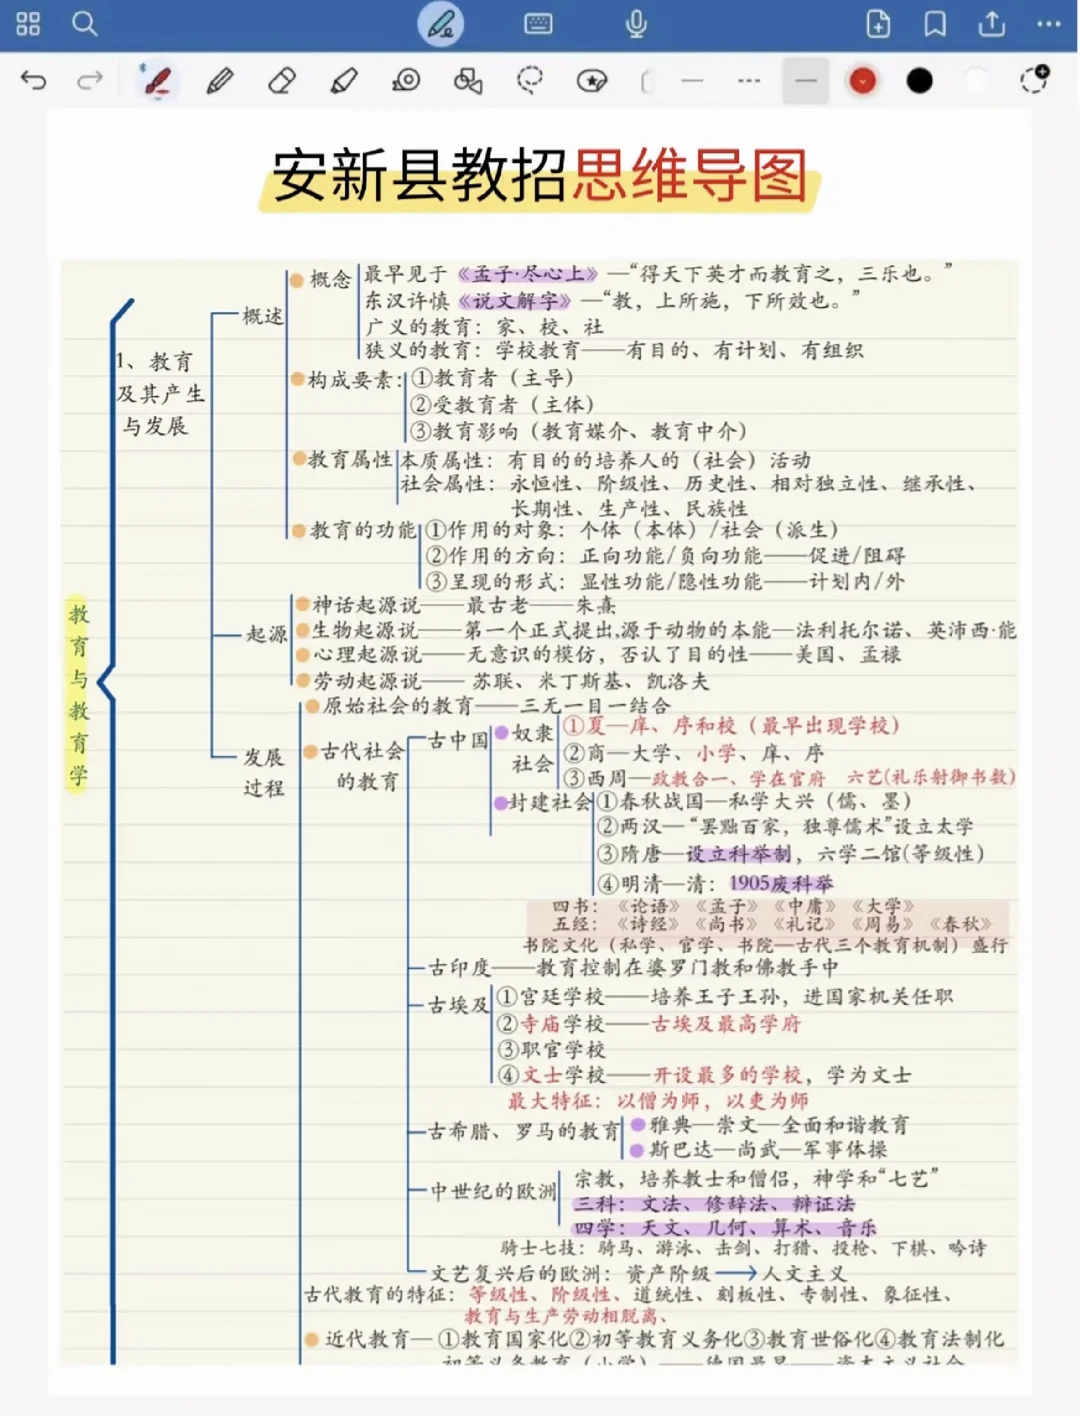 安新县教招思维导图
教育与教育学
1、教育及其产生与发展
概述
概念
最早见于《孟子·尽心上》—“得天下英才而教育之，三乐也。”
东汉许慎《说文解字》—“教，上所施，下所效也。”
广义的教育：家、校、社
狭义的教育：学校教育——有目的、有计划、有组织
构成要素：
①教育者（主导）
②受教育者（主体）
③教育影响（教育媒介、教育中介）
教育属性
本质属性：有目的的培养人的（社会）活动
社会属性：永恒性、阶级性、历史性、相对独立性、继承性、
长期性、生产性、民族性
教育的功能
①作用的对象：个体（本体）/社会（派生）
②作用的方向：正向功能/负向功能——促进/阻碍
③呈现的形式：显性功能/隐性功能——计划内/外
起源
神话起源说——最古老——朱熹
生物起源说——第一个正式提出,源于动物的本能—法利托尔诺、英沛西·能
心理起源说——无意识的模仿，否认了目的性——美国、孟禄
劳动起源说——苏联、米丁斯基、凯洛夫
发展过程
原始社会的教育——三无一目一结合
古代社会的教育
古中国
奴隶社会
①夏—庠、序和校（最早出现学校）
②商—大学、小学、庠、序
③西周—政教合一、学在官府 六艺(礼乐射御书数)
封建社会
①春秋战国—私学大兴（儒、墨）
②两汉—“罢黜百家，独尊儒术”设立太学
③隋唐—设立科举制，六学二馆(等级性)
④明清—清：1905废科举
四书：《论语》《孟子》《中庸》《大学》
五经：《诗经》《尚书》《礼记》《周易》《春秋》
书院文化（私学、官学、书院—古代三个教育机制）盛行
古印度——教育控制在婆罗门教和佛教手中
古埃及
①宫廷学校——培养王子王孙，进国家机关任职
②寺庙学校——古埃及最高学府
③职官学校
④文士学校——开设最多的学校，学为文士
最大特征：以僧为师，以吏为师
古希腊、罗马的教育
雅典—崇文—全面和谐教育
斯巴达—尚武—军事体操
中世纪的欧洲
宗教，培养教士和僧侣，神学和“七艺”
三科：文法、修辞法、辩证法
四学：天文、几何、算术、音乐
骑士七技：骑马、游泳、击剑、打猎、投枪、下棋、吟诗
文艺复兴后的欧洲：资产阶级→人文主义
古代教育的特征：等级性、阶级性、道统性、刻板性、专制性、象征性、
教育与生产劳动相脱离、
近代教育—①教育国家化②初等教育义务化③教育世俗化④教育法制化
初等义务教育（小学）——德国最早——资本主义社会